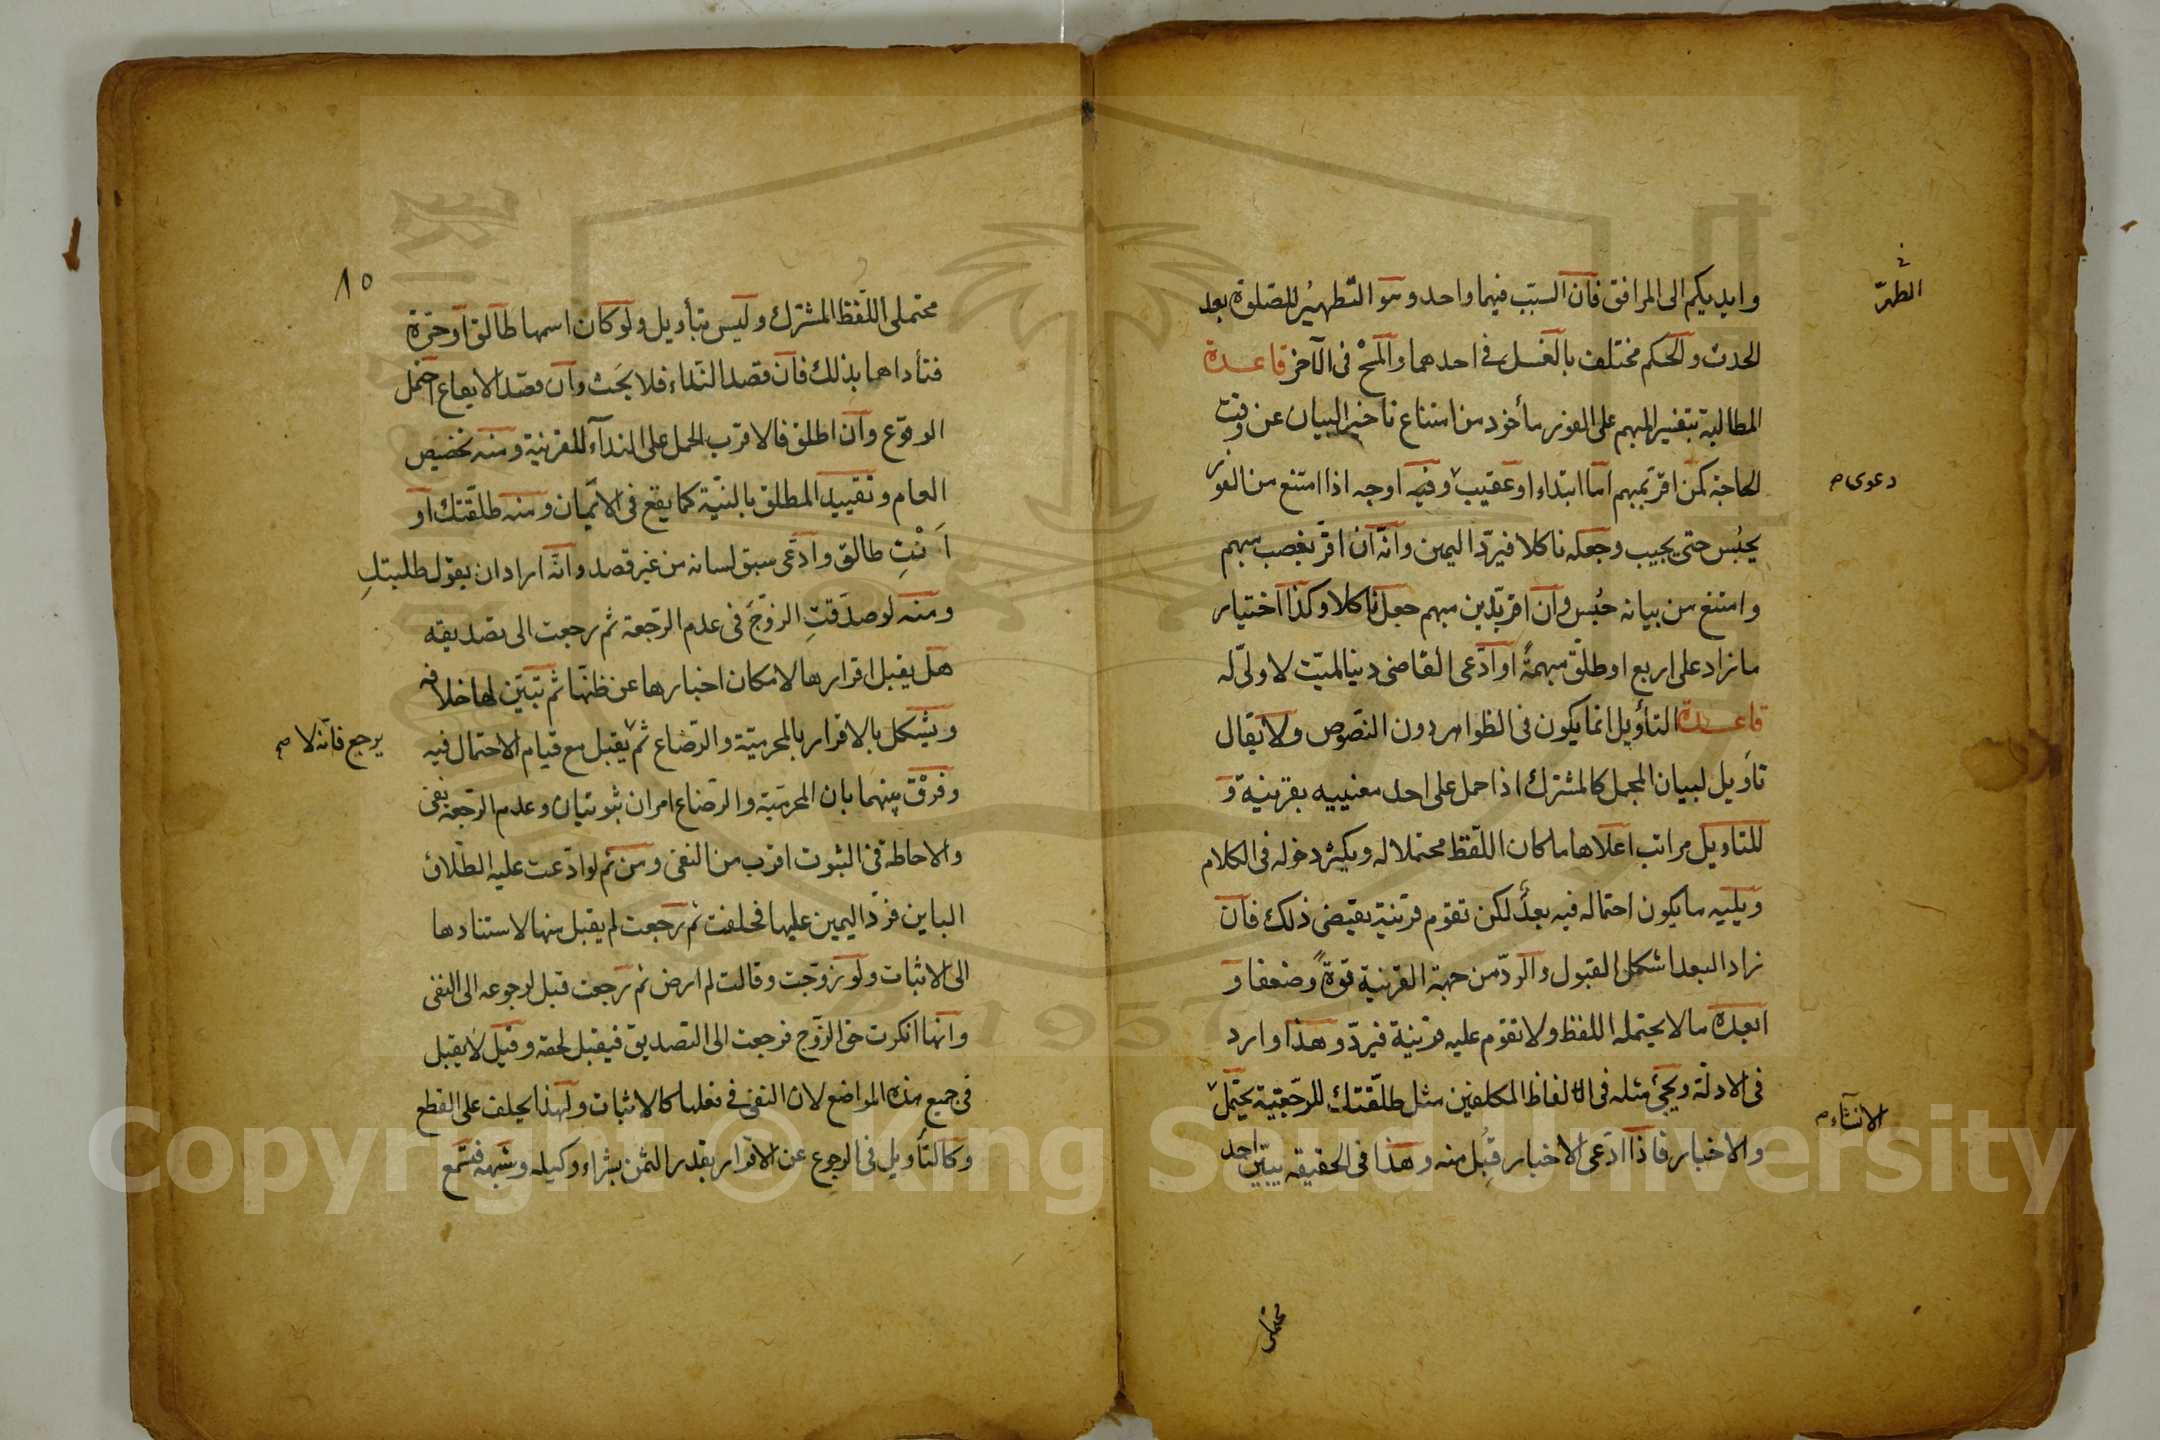 وايديكم الى المرافق فان السبب فيهما واحد وهو التطهير للصلوة بعد
الحدث والحكم مختلف بالغسل فى احدهما والمسح فى الآخر قاعدة
المطالبة بتفسير المبهم على الفور مأخوذ من امتناع تاخير البيان عن وقت
الحاجة كمن اقر بمبهم اما ابتداء او عقيب وفيه اوجه اذا امتنع من الفور
يحبس حتى يجيب وجعله ناكلا فيرد اليمين وانه ان اقر بغصب مبهم
وامتنع من بيانه حبس وان اقر بدين مبهم جعل ناكلا وكذا اختيار
ما زاد على اربع او طلق مبهمة او ادعى القاضى دينا لميت لا ولى له
قاعدة التأويل انما يكون فى الظواهر دون النصوص ولا يقال
تأويل لبيان المجمل كالمشترك اذا حمل على احد معنييه بقرينة و
للتاويل مراتب اعلاها ما كان اللفظ محتملا له ويكثر دخوله فى الكلام
ويليه ما يكون احتماله فيه بعد لكن تقوم قرينة تقتضى ذلك فان
زاد البعد اشكل القبول والرد من جهة القرينة قوة وضعفا و
ابعده ما لا يحتمله اللفظ ولا تقوم عليه قرينة فيرد وهذا وارد
فى الادلة ويجئ مثله فى الفاظ المكلفين مثل طلقتك للرجعية يحتمل
والاخبار فاذا ادعى الاخبار قبل منه وهذا فى الحقيقه تبيين احد
الطهر
دعوى م
الانشاء م
محتملى
١٥
محتملى اللفظ المشترك وليس بتأويل ولو كان اسمها طالق او حرة
فناداها بذلك فان قصد النداء فلا بحث وان قصد الايقاع احتمل
الوقوع وان اطلق فالاقرب الحمل على النداء للقرينة ومنه تخصيص
العام وتقييد المطلق بالنية كما يقع فى الايمان ومنه طلقتك او
انت طالق وادعى سبق لسانه من غير قصد وانه اراد ان يقول طلبتك
ومنه لو صدقت الزوج فى عدم الرجعة ثم رجعت الى تصديقه
هل يقبل اقرارها لامكان اخبارها عن ظنها ثم تبين لها خلافه
ويشكل بالاقرار بالمحرمية والرضاع ثم يقبل مع قيام الاحتمال فيه
وفرق بينهما بان المحرمية والرضاع امران ثبوتيان وعدم الرجعة نفى
والاحاطة فى الثبوت اقرب من النفى ومن ثم لو ادعت عليه الطلاق
الباين فرد اليمين عليها فحلفت ثم رجعت لم يقبل منها لاستنادها
الى الاثبات ولو زوجت وقالت لم ارض ثم رجعت قبل لرجوعه الى النفى
وانها انكرت حق الزوج فرجعت الى التصديق فيقبل لحقه وقيل لا يقبل
فى جميع هذه المواضع لان النفى فى فعلها كالاثبات ولهذا يحلف على القطع
وكالتأويل فى الرجوع عن الاقرار بقدر الثمن بشراء وكيله وشبهه فتسمع
يرجع فانه لا صح
1957
Copyright © King Saud University